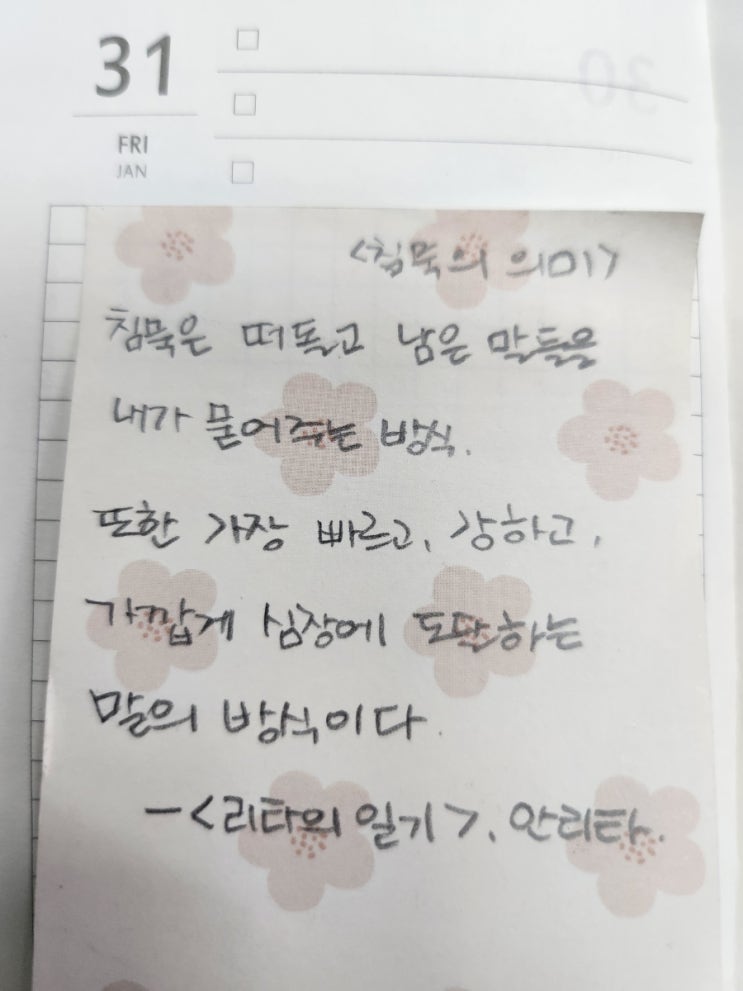 31
FRI
JAN
<침묵의 의미>
침묵은 떠돌고 남은 말들을
내가 묻어주는 방식.
또한 가장 빠르고, 강하고,
가깝게 심장에 도달하는
말의 방식이다.
-<리타의 일기>, 안리타.